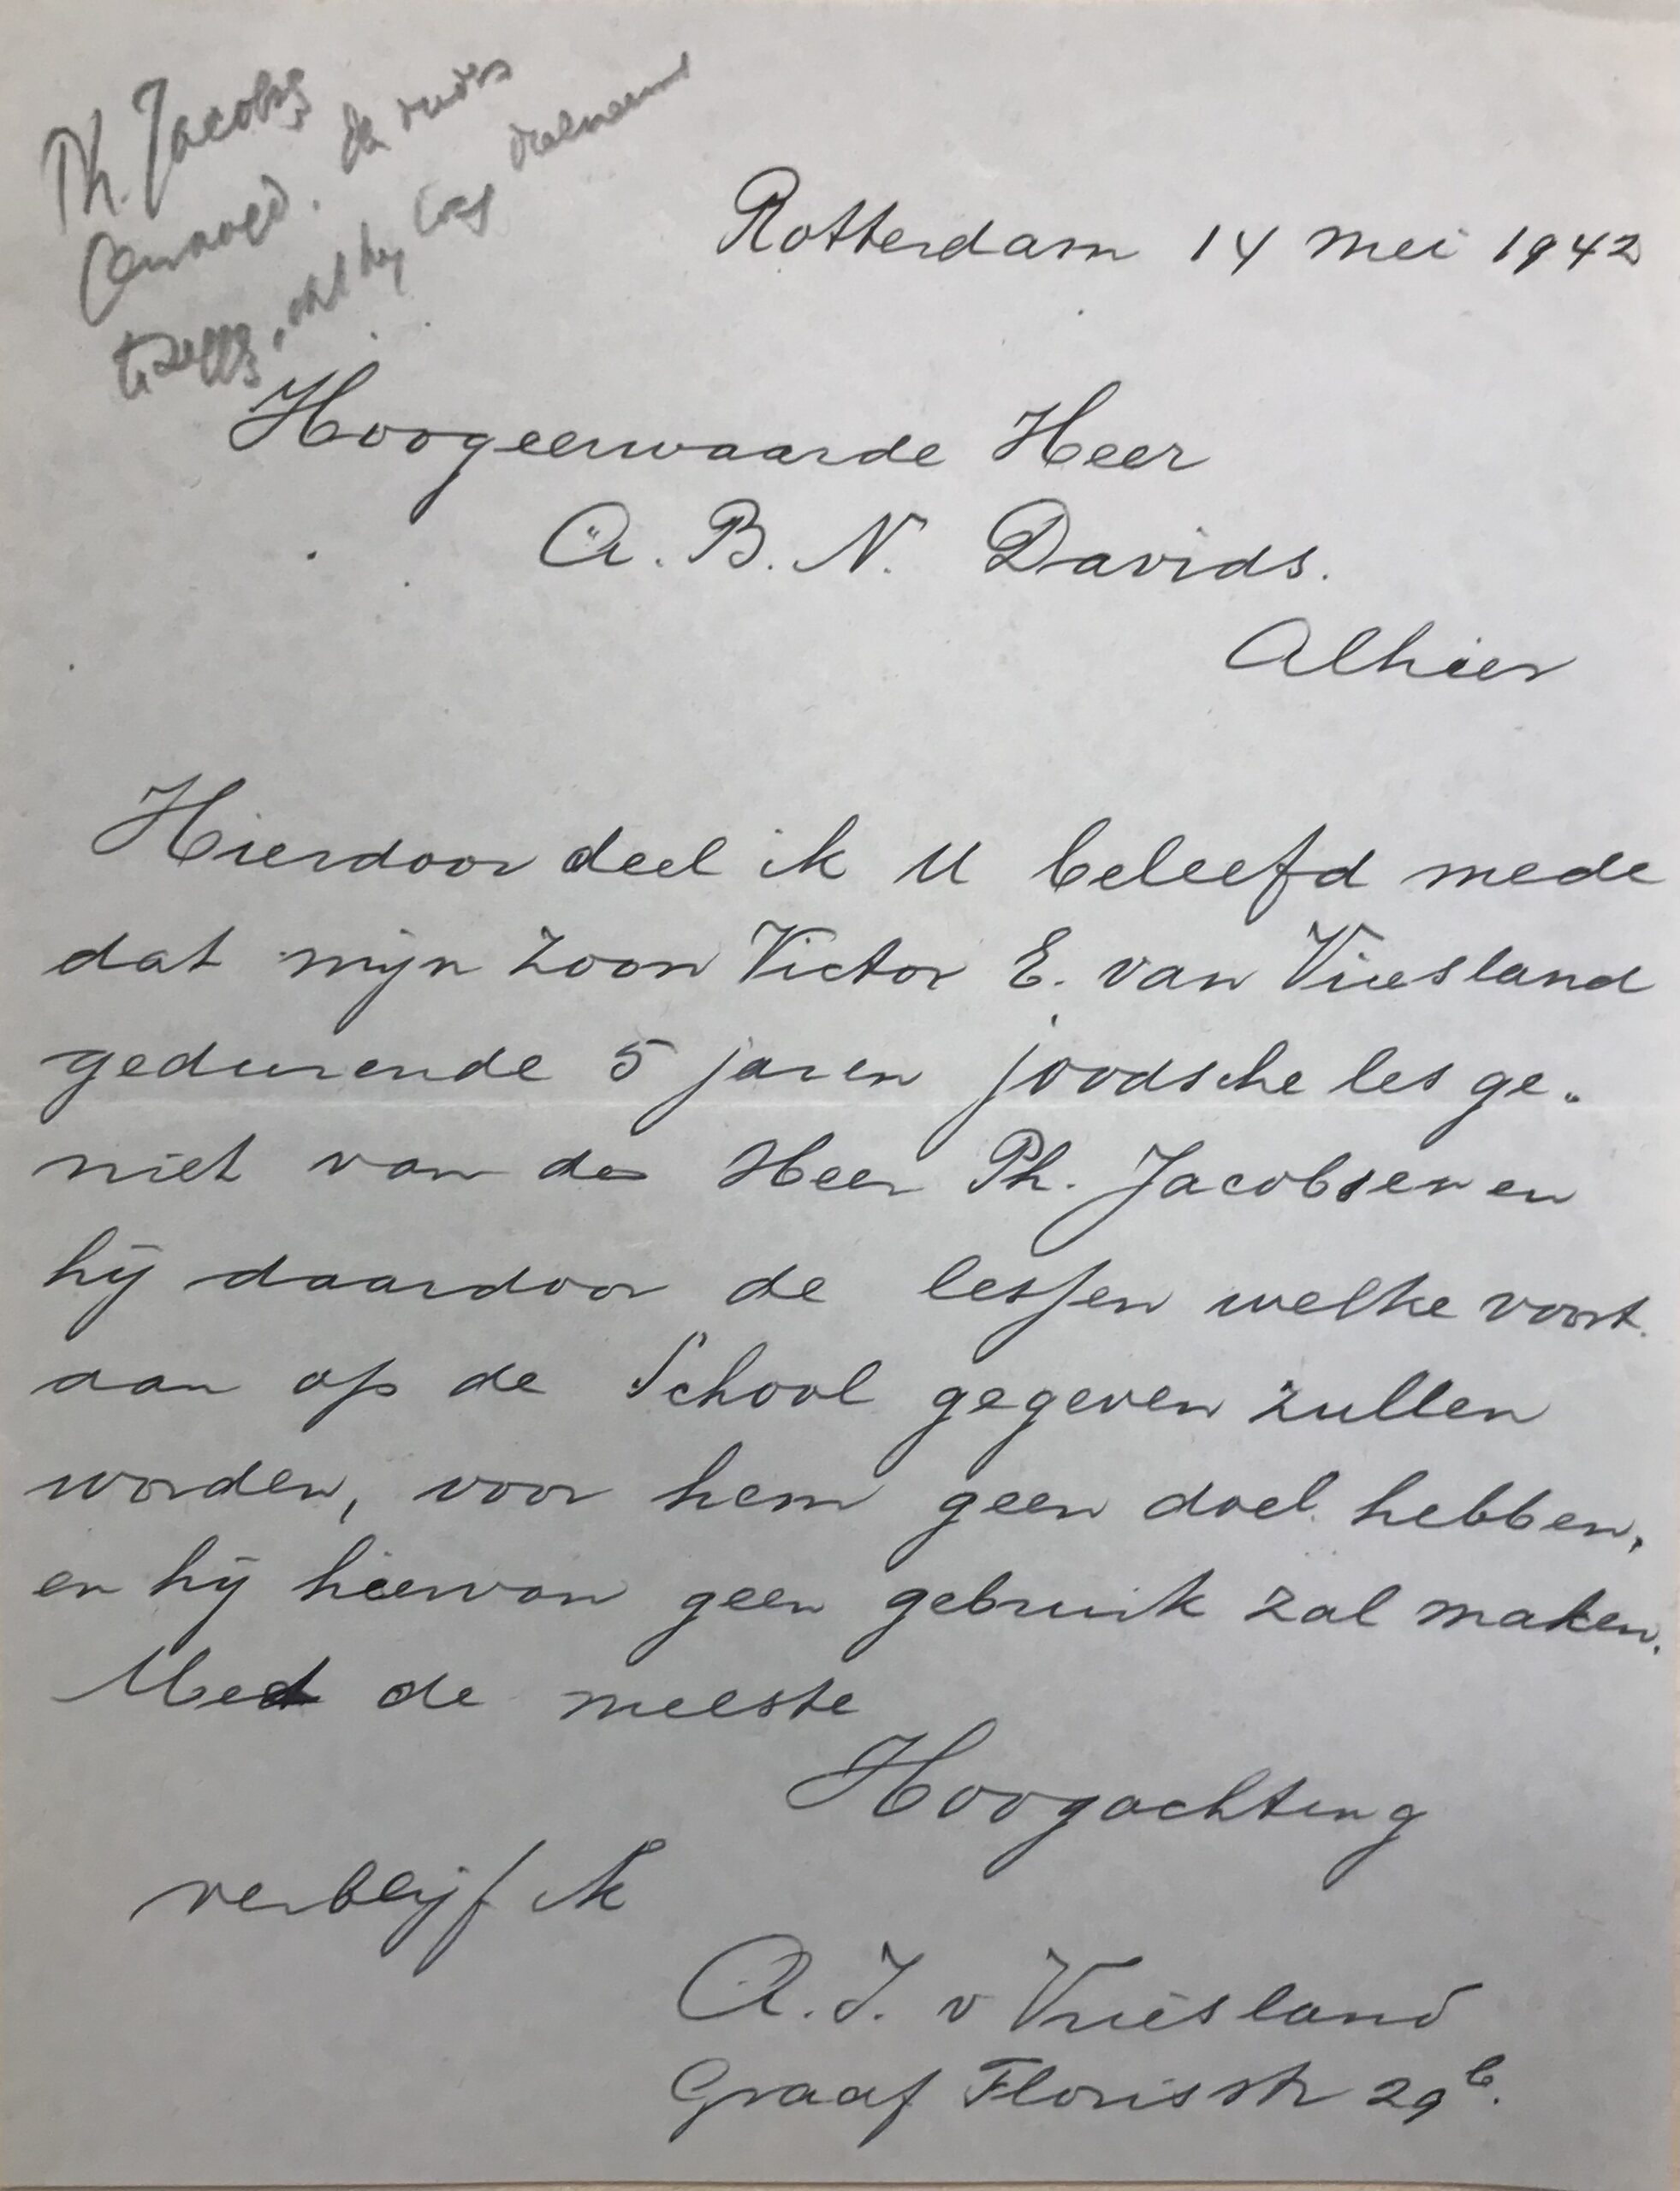 Ph. Jacobs
dat hij les
Rotterdam 14 Mei 1942
Hoogeerwaarde Heer
A. B. N. Davids.
Alhier
Hierdoor deel ik U beleefd mede
dat mijn zoon Victor E. van Vriesland
gedurende 5 jaren joodsche les ge-
niet van de Heer Ph. Jacobsen en
hij daardoor de lessen welke voort-
aan op de School gegeven zullen
worden, voor hem geen doel hebben,
en hij hiervan geen gebruik zal maken.
Met de meeste
Hoogachting
verblijf ik
A. J. v Vriesland
Graaf Florisstr 29b.